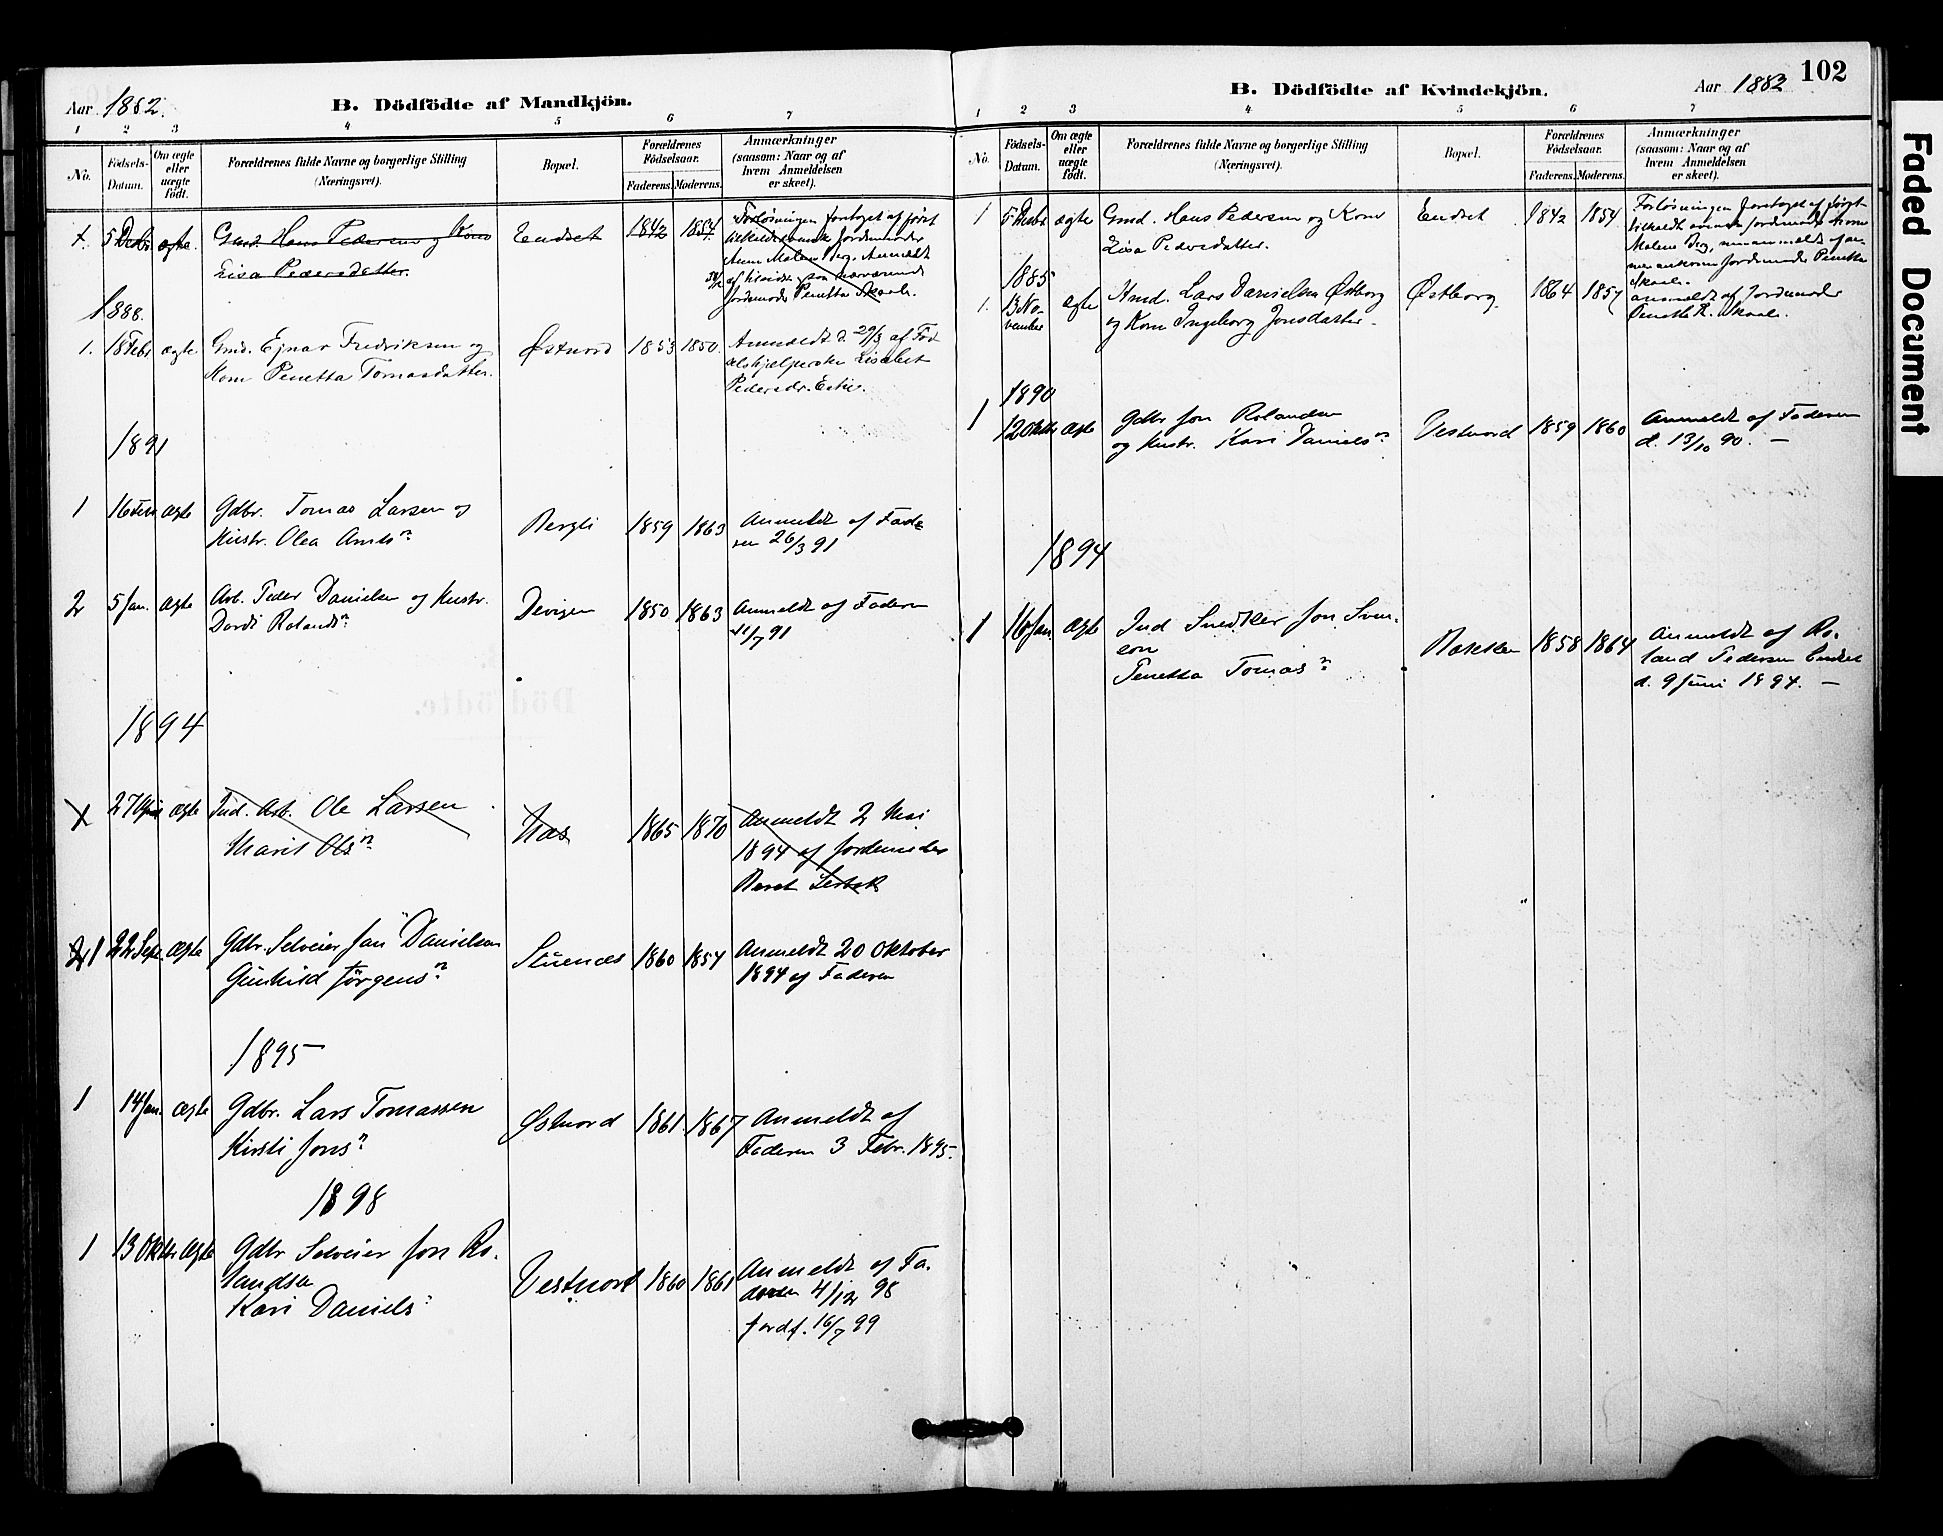 Aar 1882.
B. Dödfödte af Mandkjön.
1 2 3 4 5 6 7
No. Födsels-Datum. Om ægte eller uægte födt. Forældrenes fulde Navne og borgerlige Stilling (Næringsvei). Bopæl. Forældrenes Födselsaar. Faderens. Moderens. Anmærkninger (saasom: Naar og af hvem Anmeldelsen er skeet).
5 Decbr ægte. Gmd. Hans Pedersen og Kone Endset 1842 1854
Lisa Pedersdatter.
Forløsningen foretaget af først
Jordemoder
Anne Malene Berg. Anmeldt
Jordemoder Penetta Skaale.
1888.
1. 18 Febr ægte. Gmd. Ejnar Fredriksen og Østnord 1853 1850. Anmeldt d. 29/3 af Fød
Kone Penetta Tomasdatter. selshjælperske Lisabet
Pedersdr.
1891
1 16 ægte Gdbr. Tomas Larsen og Bergli 1859 1863 Anmeldt af Fade
Hustr. Olea ren 26/3 91
2 5 Jan. ægte Arb. Peder Danielsen og Hustr. 1850 1863 Anmeldt af Faderen
Dordi Rolandsn. 11/7 91
1894
27 ægte Ind. Arb. Ole Larsen Næs 1865 1870 Anmeldt 2 Mai
Marit Olsn. 1894 af Jordemoder
Beret
2 1 22 Sept. ægte Gdbr. Selveier Jon Danielsen Stuenæs 1860 1854 Anmeldt 20 Oktober
Gunhild Jørgensn. 1894 af Faderen
1895
1 14 Jan. ægte Gdbr. Lars Tomassen Østnord 1861 1867 Anmeldt af
Kirsti Jonsn. Faderen 3 Febr. 1895.
1898
1 13 Oktbr ægte Gdbr Selveier Jon Ro- Vestnord 1860 1861 Anmeldt af Fa-
landsen deren 4/12 98
Kari Daniels. Jordf. 16/7 99
102
B. Dödfödte af Kvindekjön.
Aar 1883
1 2 3 4 5 6 7
No. Födsels-Datum. Om ægte eller uægte födt. Forældrenes fulde Navne og borgerlige Stilling (Næringsvei). Bopæl. Forældrenes Födselsaar. Faderens. Moderens. Anmærkninger (saasom: Naar og af hvem Anmeldelsen er skeet).
1 5 Decbr ægte Gmd. Hans Pedersen og Kone Endset 1842 1854 Forløsningen foretaget af først
Lisa Pedersdatter. tilkaldt Jordemoder Anne
Malene Berg,
Jordemoder Penetta
Skaale.
1885
1. 13 No- ægte Kmd. Lars Danielsen Østborg Østborg. 1864 1857 anmeldt af Jordemoder
vember og Kone Ingeborg Jonsdatter. Skaale.
1890
1 12 Oktbr ægte Gdbr Jon Rolandsen Vestnord 1859 1860 Anmeldt af Faderen
og Hustr. Kari Danielsn. d. 13/10 90. —
1894
1 16 Jan ægte Ind Snedker Jon Sven- 1858 1864 Anmeldt af Ro-
Penetta Tomasn. land Pedersen
d. 9 Juni 1894. —
Faded Document